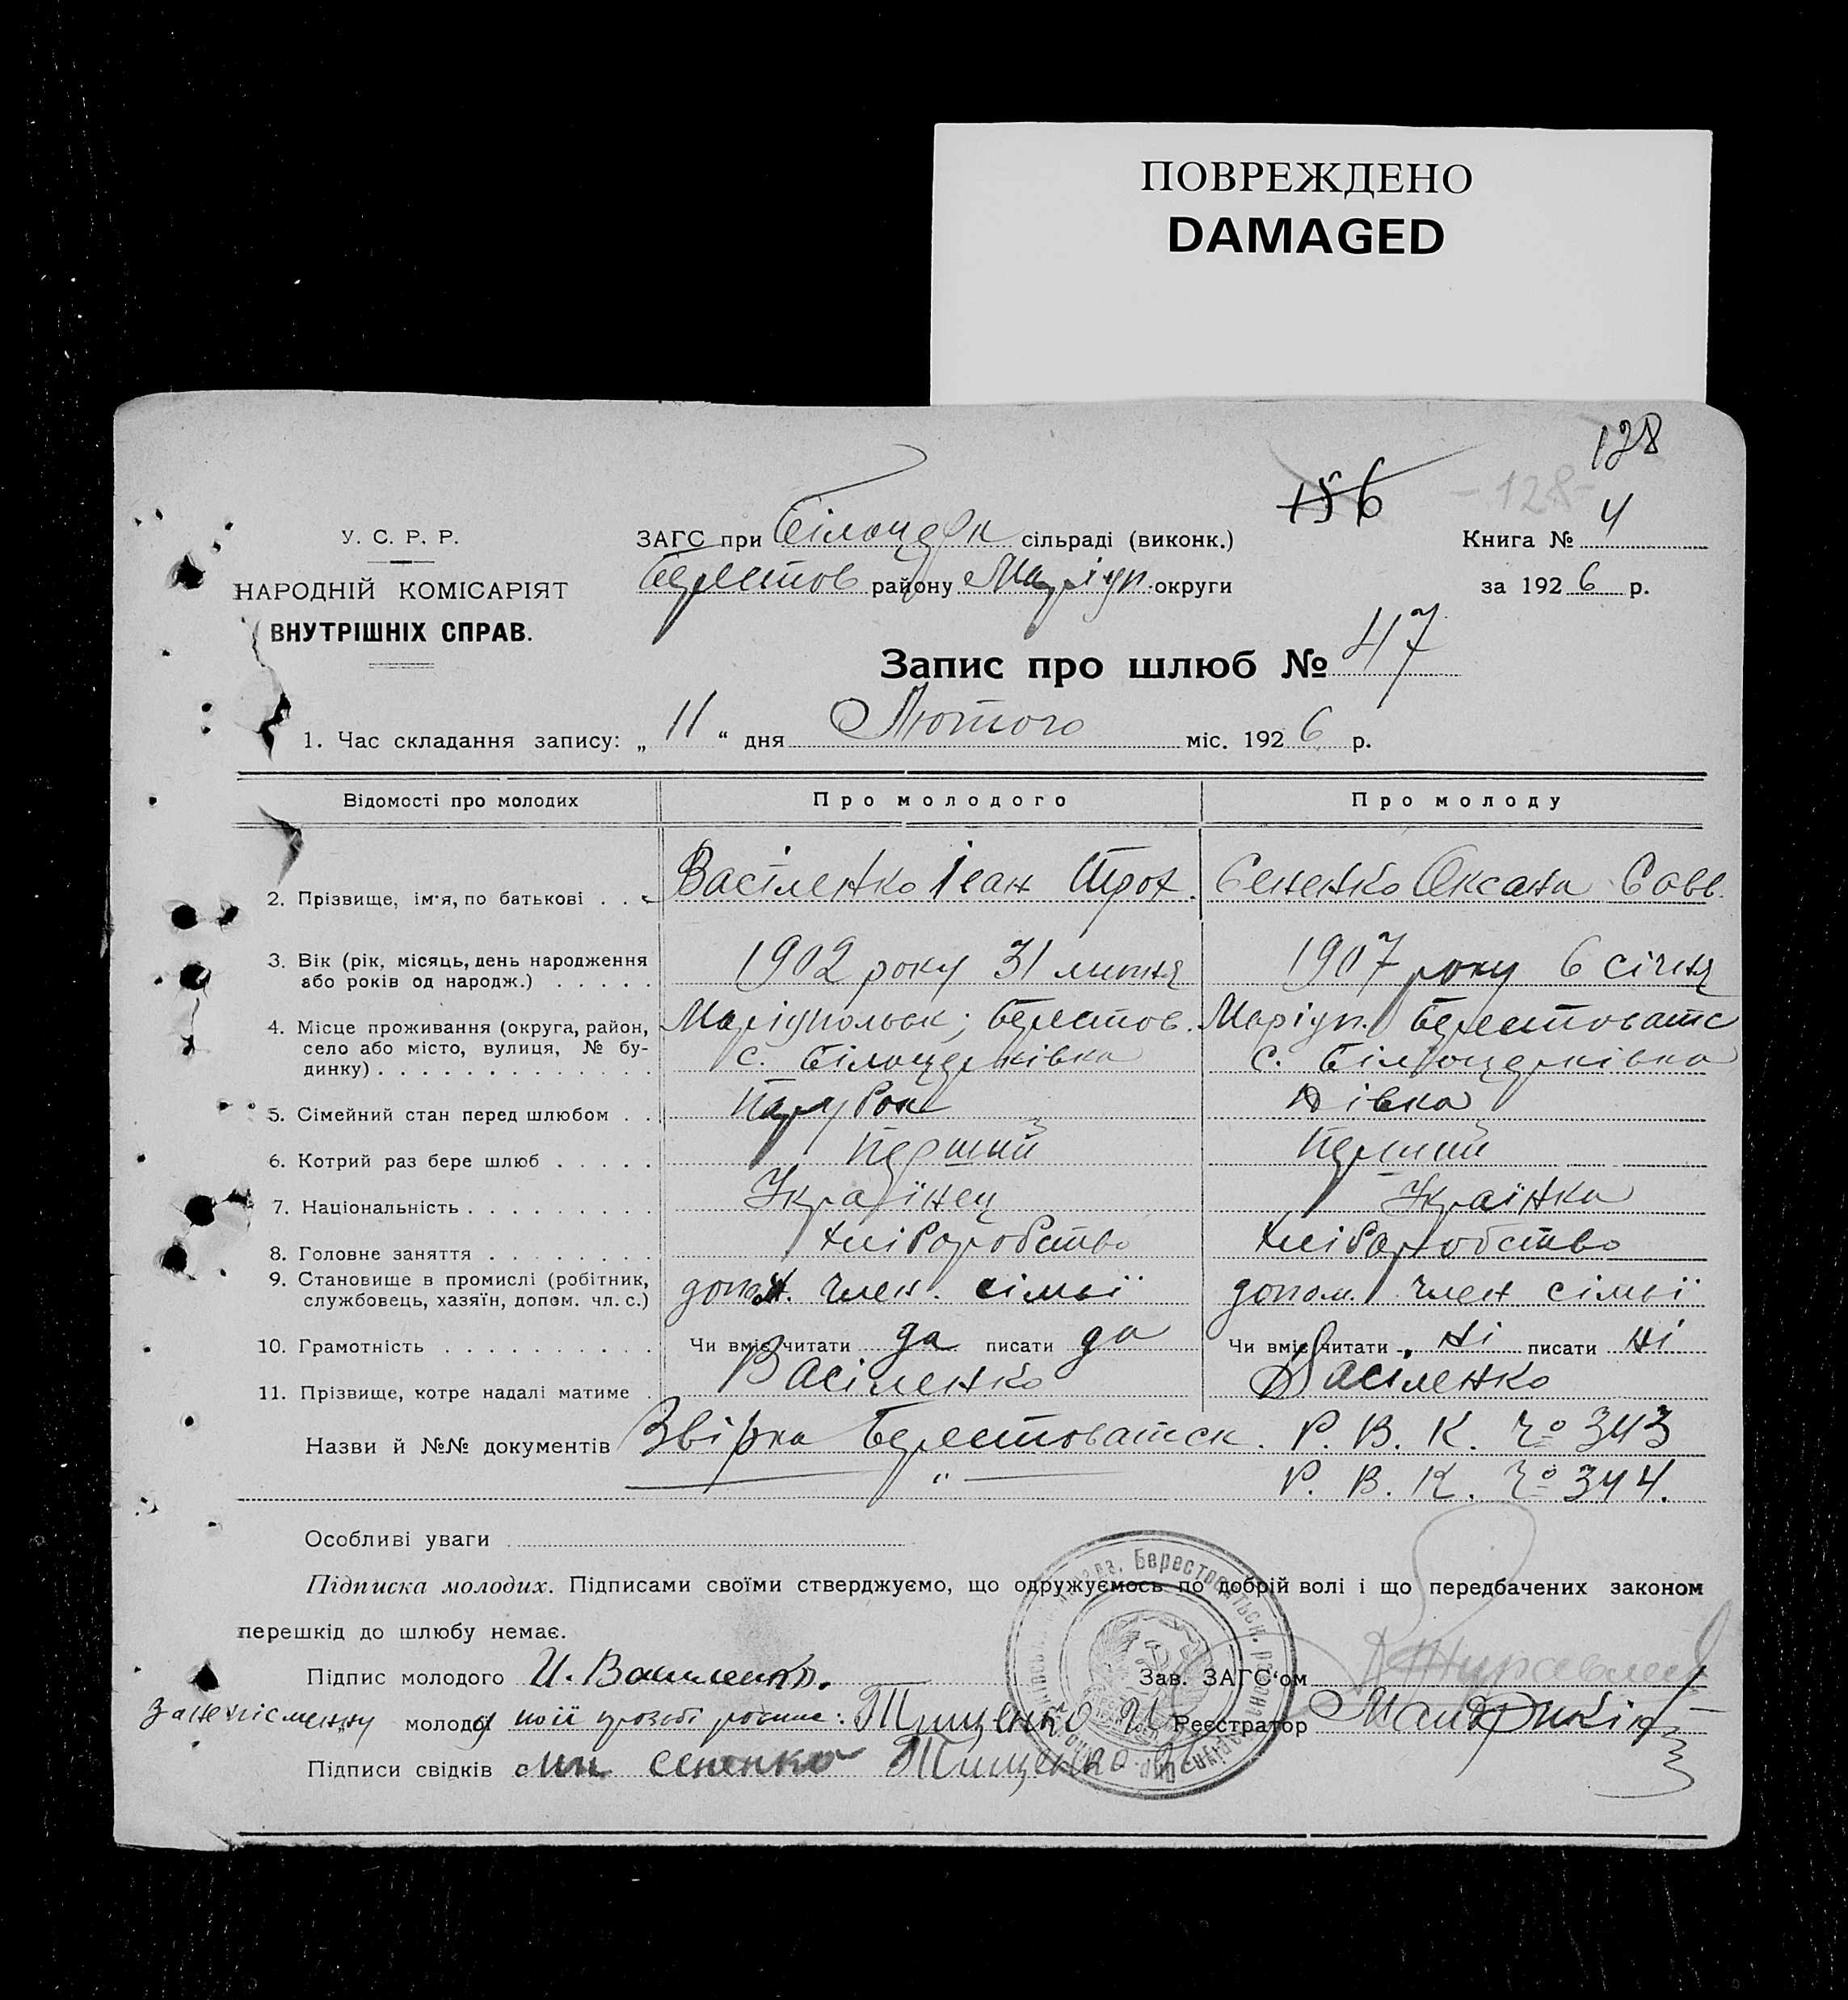 ПОВРЕЖДЕНО
DAMAGED
128
156
- 128 -
У. С. Р. Р.
НАРОДНІЙ КОМІСАРІЯТ
ВНУТРІШНІХ СПРАВ.
ЗАГС при Білоцерк сільраді (виконк.)
Берестов району Маріуп. округи
Книга № 4
за 1926 р.
Запис про шлюб № 47
1. Час складання запису: „ 11 “ дня Лютого міс. 1926 р.
Відомості про молодих Про молодого Про молоду
2. Прізвище, ім'я, по батькові . . Василенко Іван Троф. Сененко Оксана Савв.
3. Вік (рік, місяць, день народження 1902 року 31 липня 1907 року 6 січня
або років од народж.) . . . . .
4. Місце проживання (округа, район, Маріупольськ; Берестов. Маріуп. Берестоватс
село або місто, вулиця, № бу- с. Білоцерківка с. Білоцерківка
динку) . . . . . . . . . . . . .
5. Сімейний стан перед шлюбом . . Парубок Дівка
6. Котрий раз бере шлюб . . . . . Перший Перший
7. Національність . . . . . . . . . Українец Українка
8. Головне заняття . . . . . . . . Хліборобство Хліборобство
9. Становище в промислі (робітник, допом. член. сімьї допом. член сімьї
службовець, хазяїн, допом. чл. с.)
10. Грамотність . . . . . . . . . . Чи вміє читати да писати да Чи вміє читати ні писати ні
11. Прізвище, котре надалі матиме . Васіленко Васіленко
Назви й №№ документів Звірка Берестоватск. Р. В. К. Чо 343
— " — Р. В. К. Чо 344.
Особливі уваги
Підписка молодих. Підписами своїми стверджуємо, що одружуємось по добрій волі і що передбачених законом
перешкід до шлюбу немає.
Підпис молодого И. Василенко. Зав. ЗАГС'ом
За неписменну молоду по її прозьбі росписе: Тищенко И Реєстратор
Підписи свідків Сененко Тищенко
Берестоватськ. району